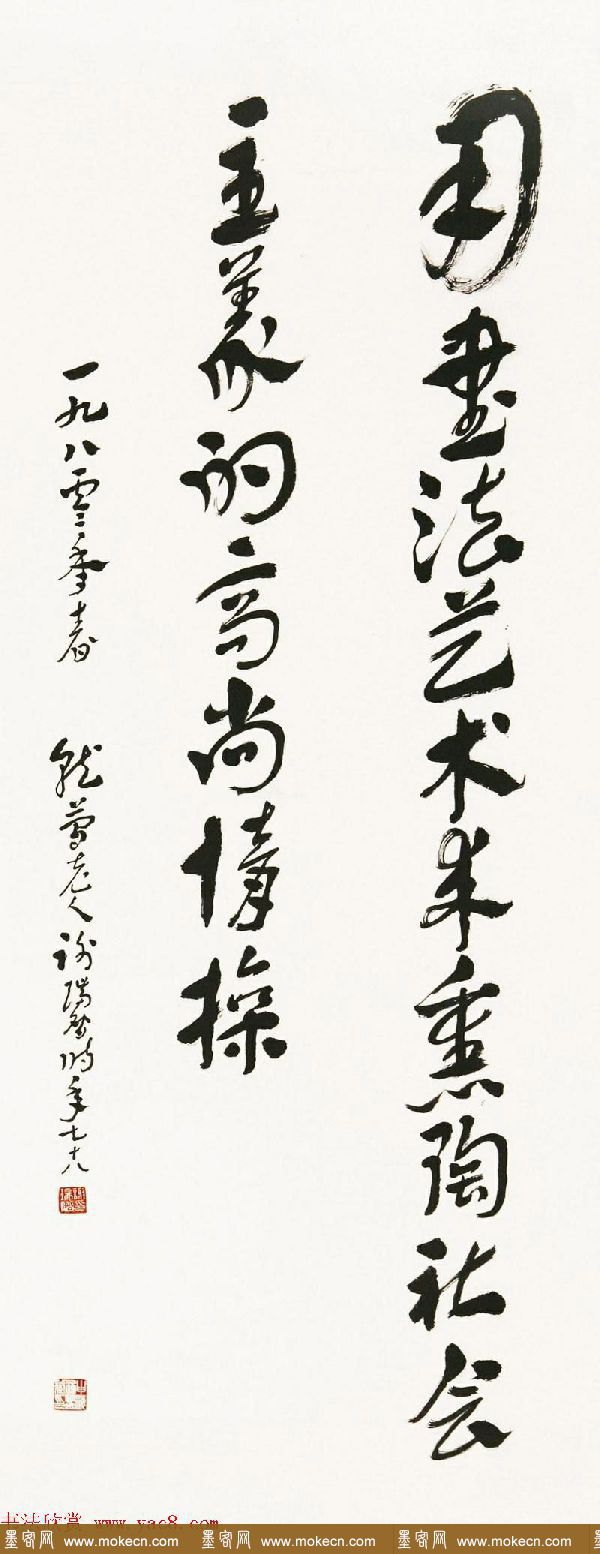 用書法艺术来熏陶社会
主義的高尚情操
一九八零年春 就简老人谢瑞阶时年七十八
书法欣赏 www.yac8.com
墨客网 www.mokecn.com 墨客网 www.mokecn.com 墨客网 www.mokecn.com